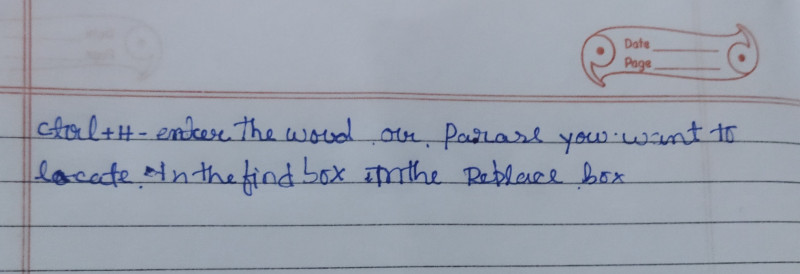 Date
Page
Ctrl+H - enter the word or Pararse you want to
locate. In the find box In the Replace box